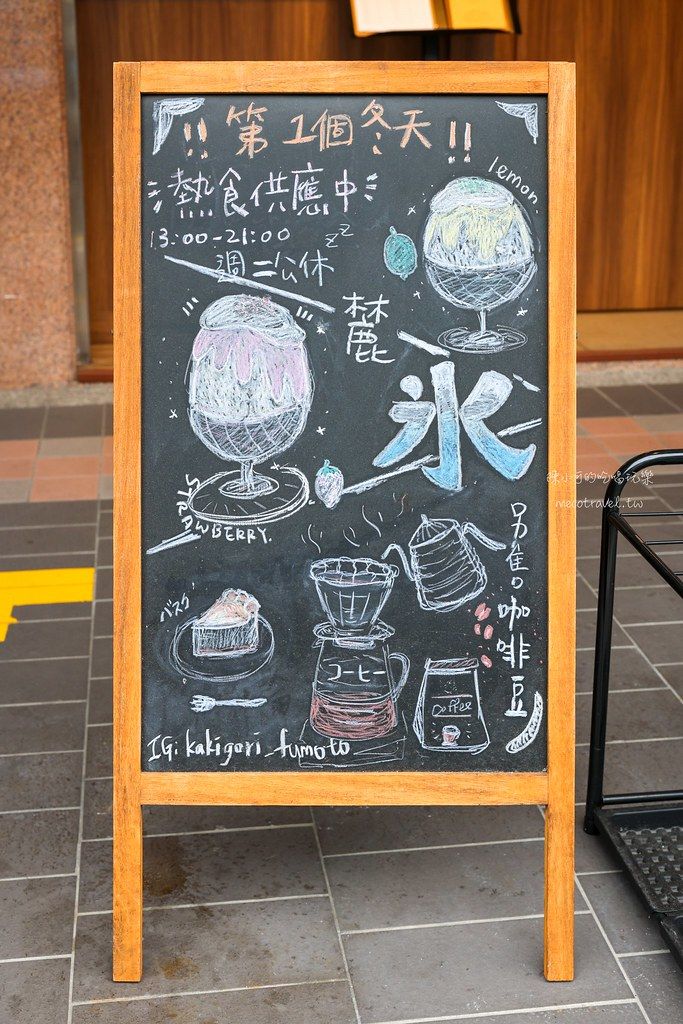 !! 第1個冬天 !!
熱食供應中
13:00-21:00
zz
週二公休
lemon.
麓
氷
STRAWBERRY.
バスク
コーヒー
Coffee
另售咖啡豆
IG: kakigori_fumoto
陳小可的吃喝玩樂
mecotravel.tw